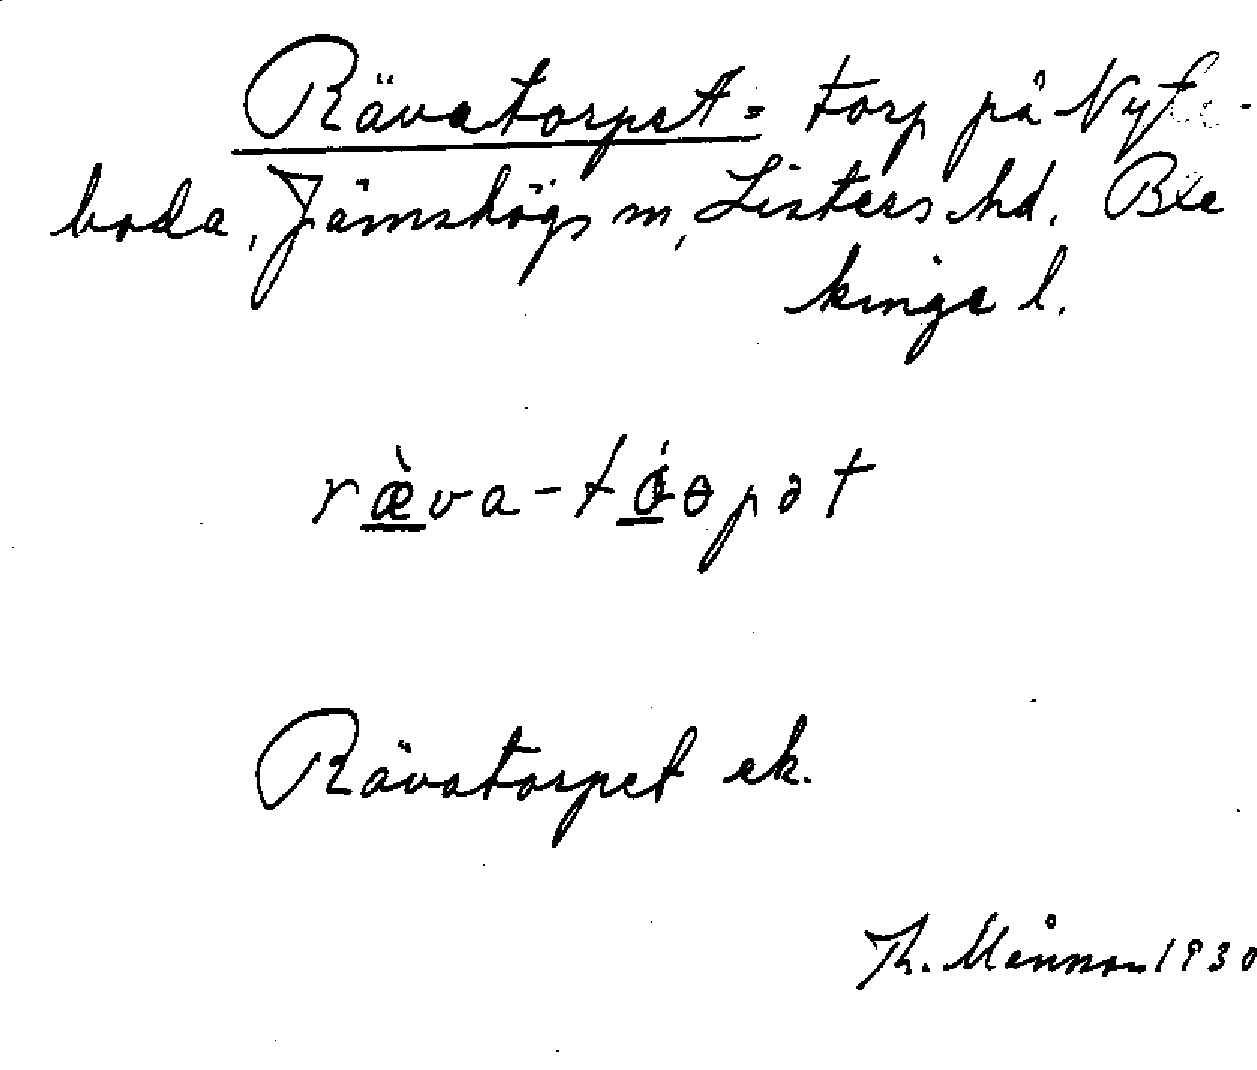 Rävatorpet = torp på Nyte-
boda, Jämshögs sn, Listers hd. Ble
kinge l.
ræ̀va-tɷ́ɵpət
Rävatorpet ek.
Th. Månson 1930